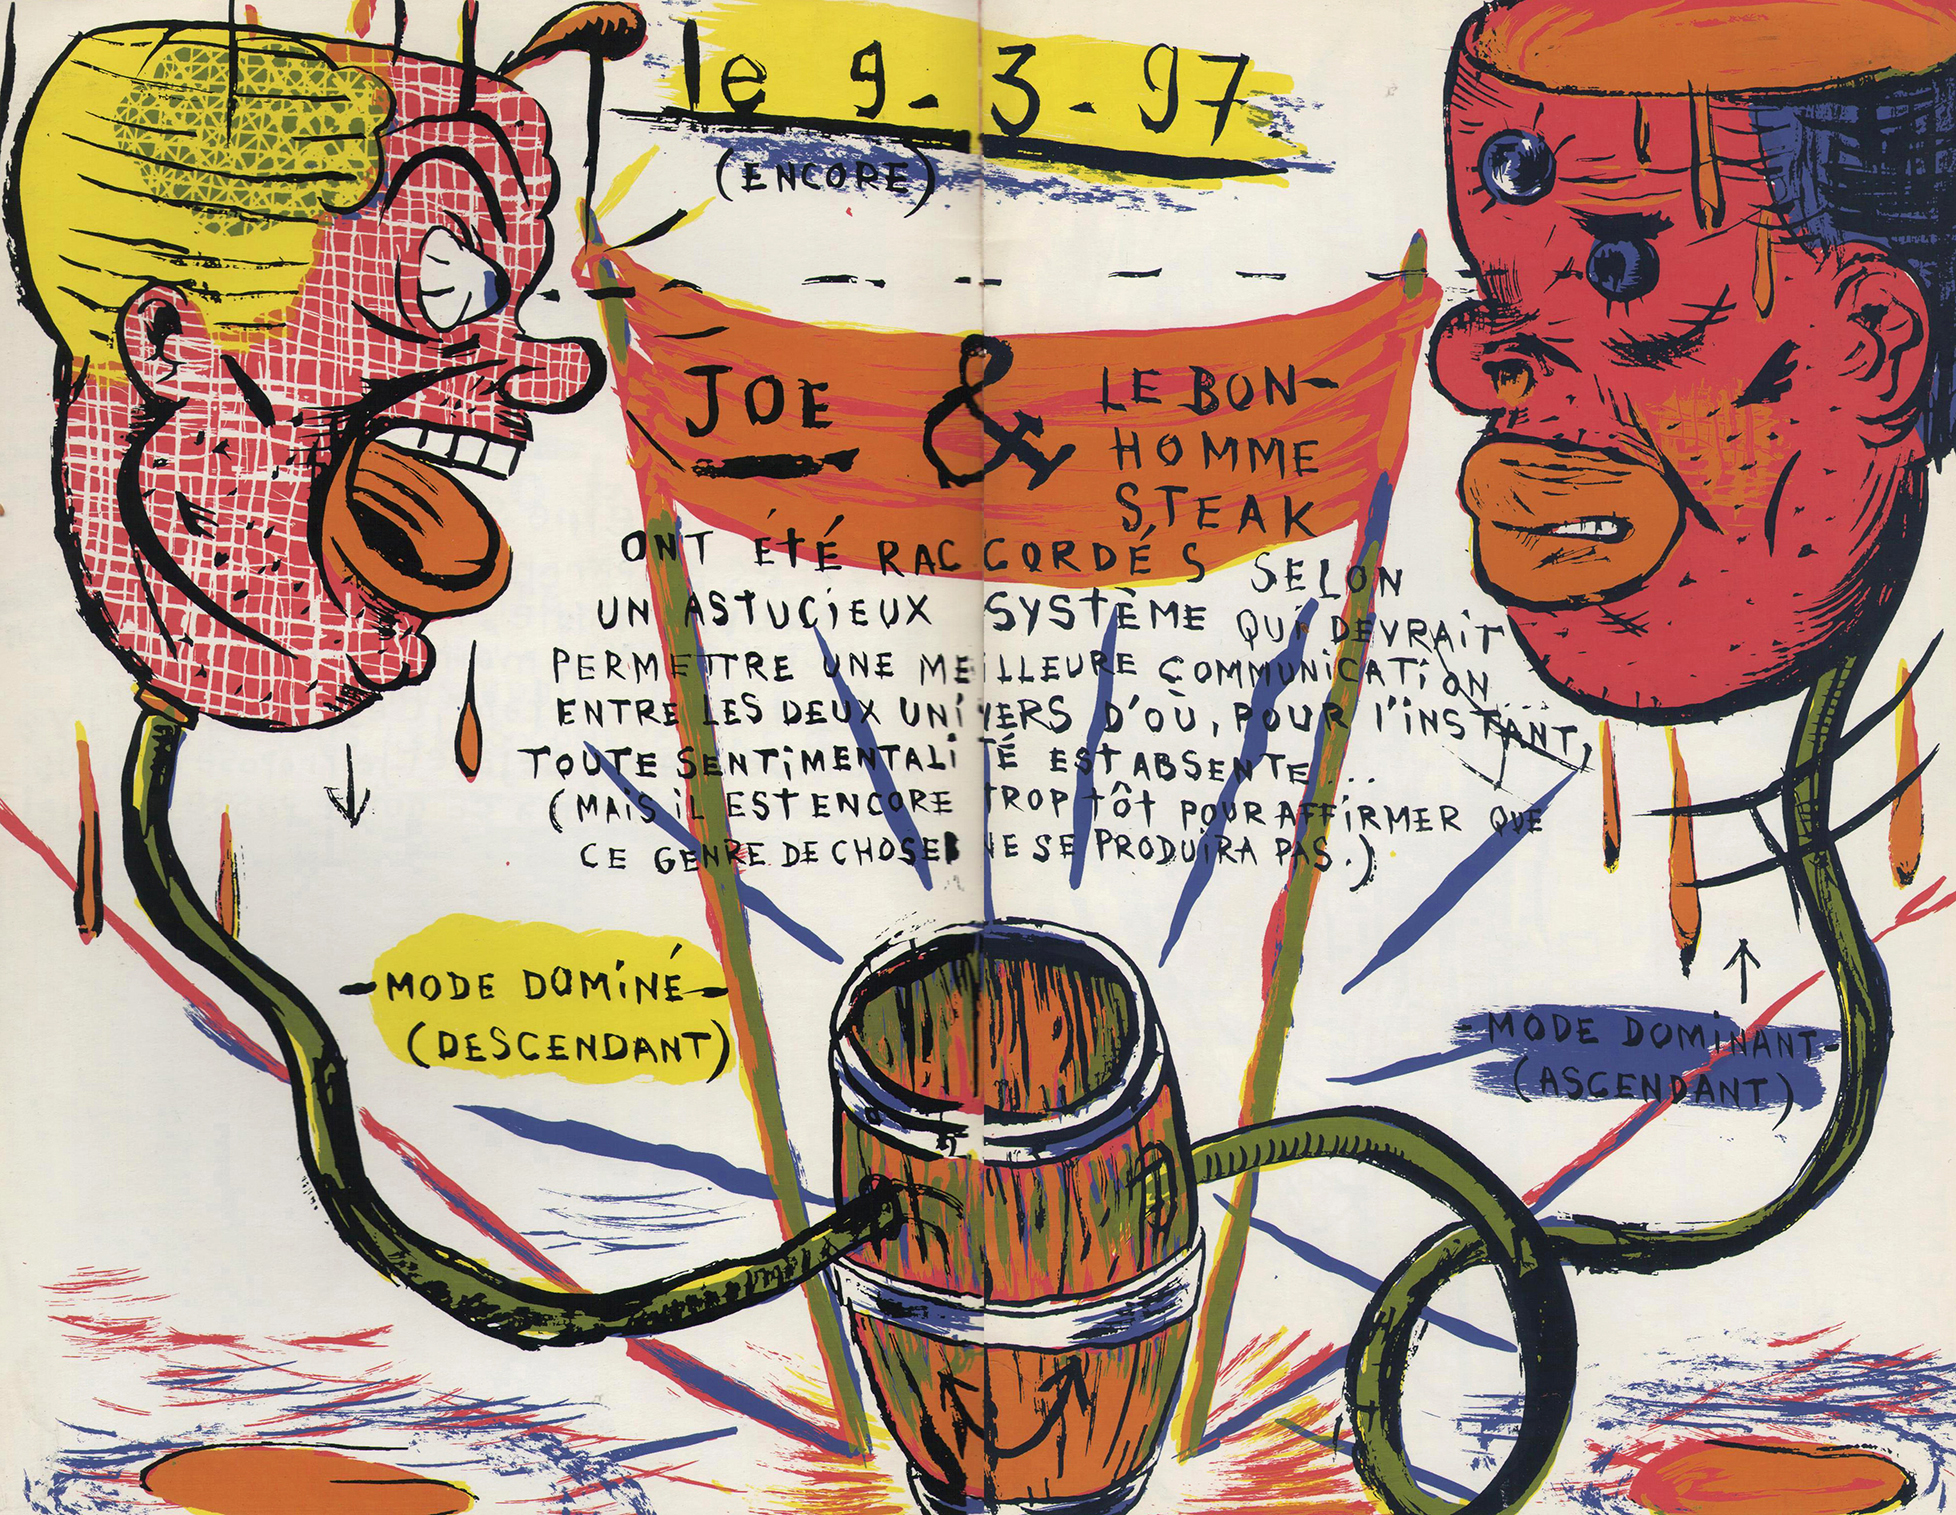 le 9-3-97
(ENCORE)
JOE & LE BON-
HOMME
STEAK
ONT ÉtÉ RACCORDÉS SELON
UN ASTUCiEUX SYSTÈME QUi DEVRAiT
PERMETTRE UNE MEILLEURE COMMUNiCATiON
ENTRE LES DEUX UNiVERS D'OÙ, POUR l'iNSTANT,
TOUTE SENTiMENTALiTÉ EST ABSENTE...
(MAiS iL EST ENCORE TROP tÔt POUR AFFiRMER QUE
CE GENRE DE CHOSES NE SE PRODUiRA PAS.)
-MODE DOMiNÉ-
(DESCENDANT)
-MODE DOMiNANT-
(ASCENDANT)